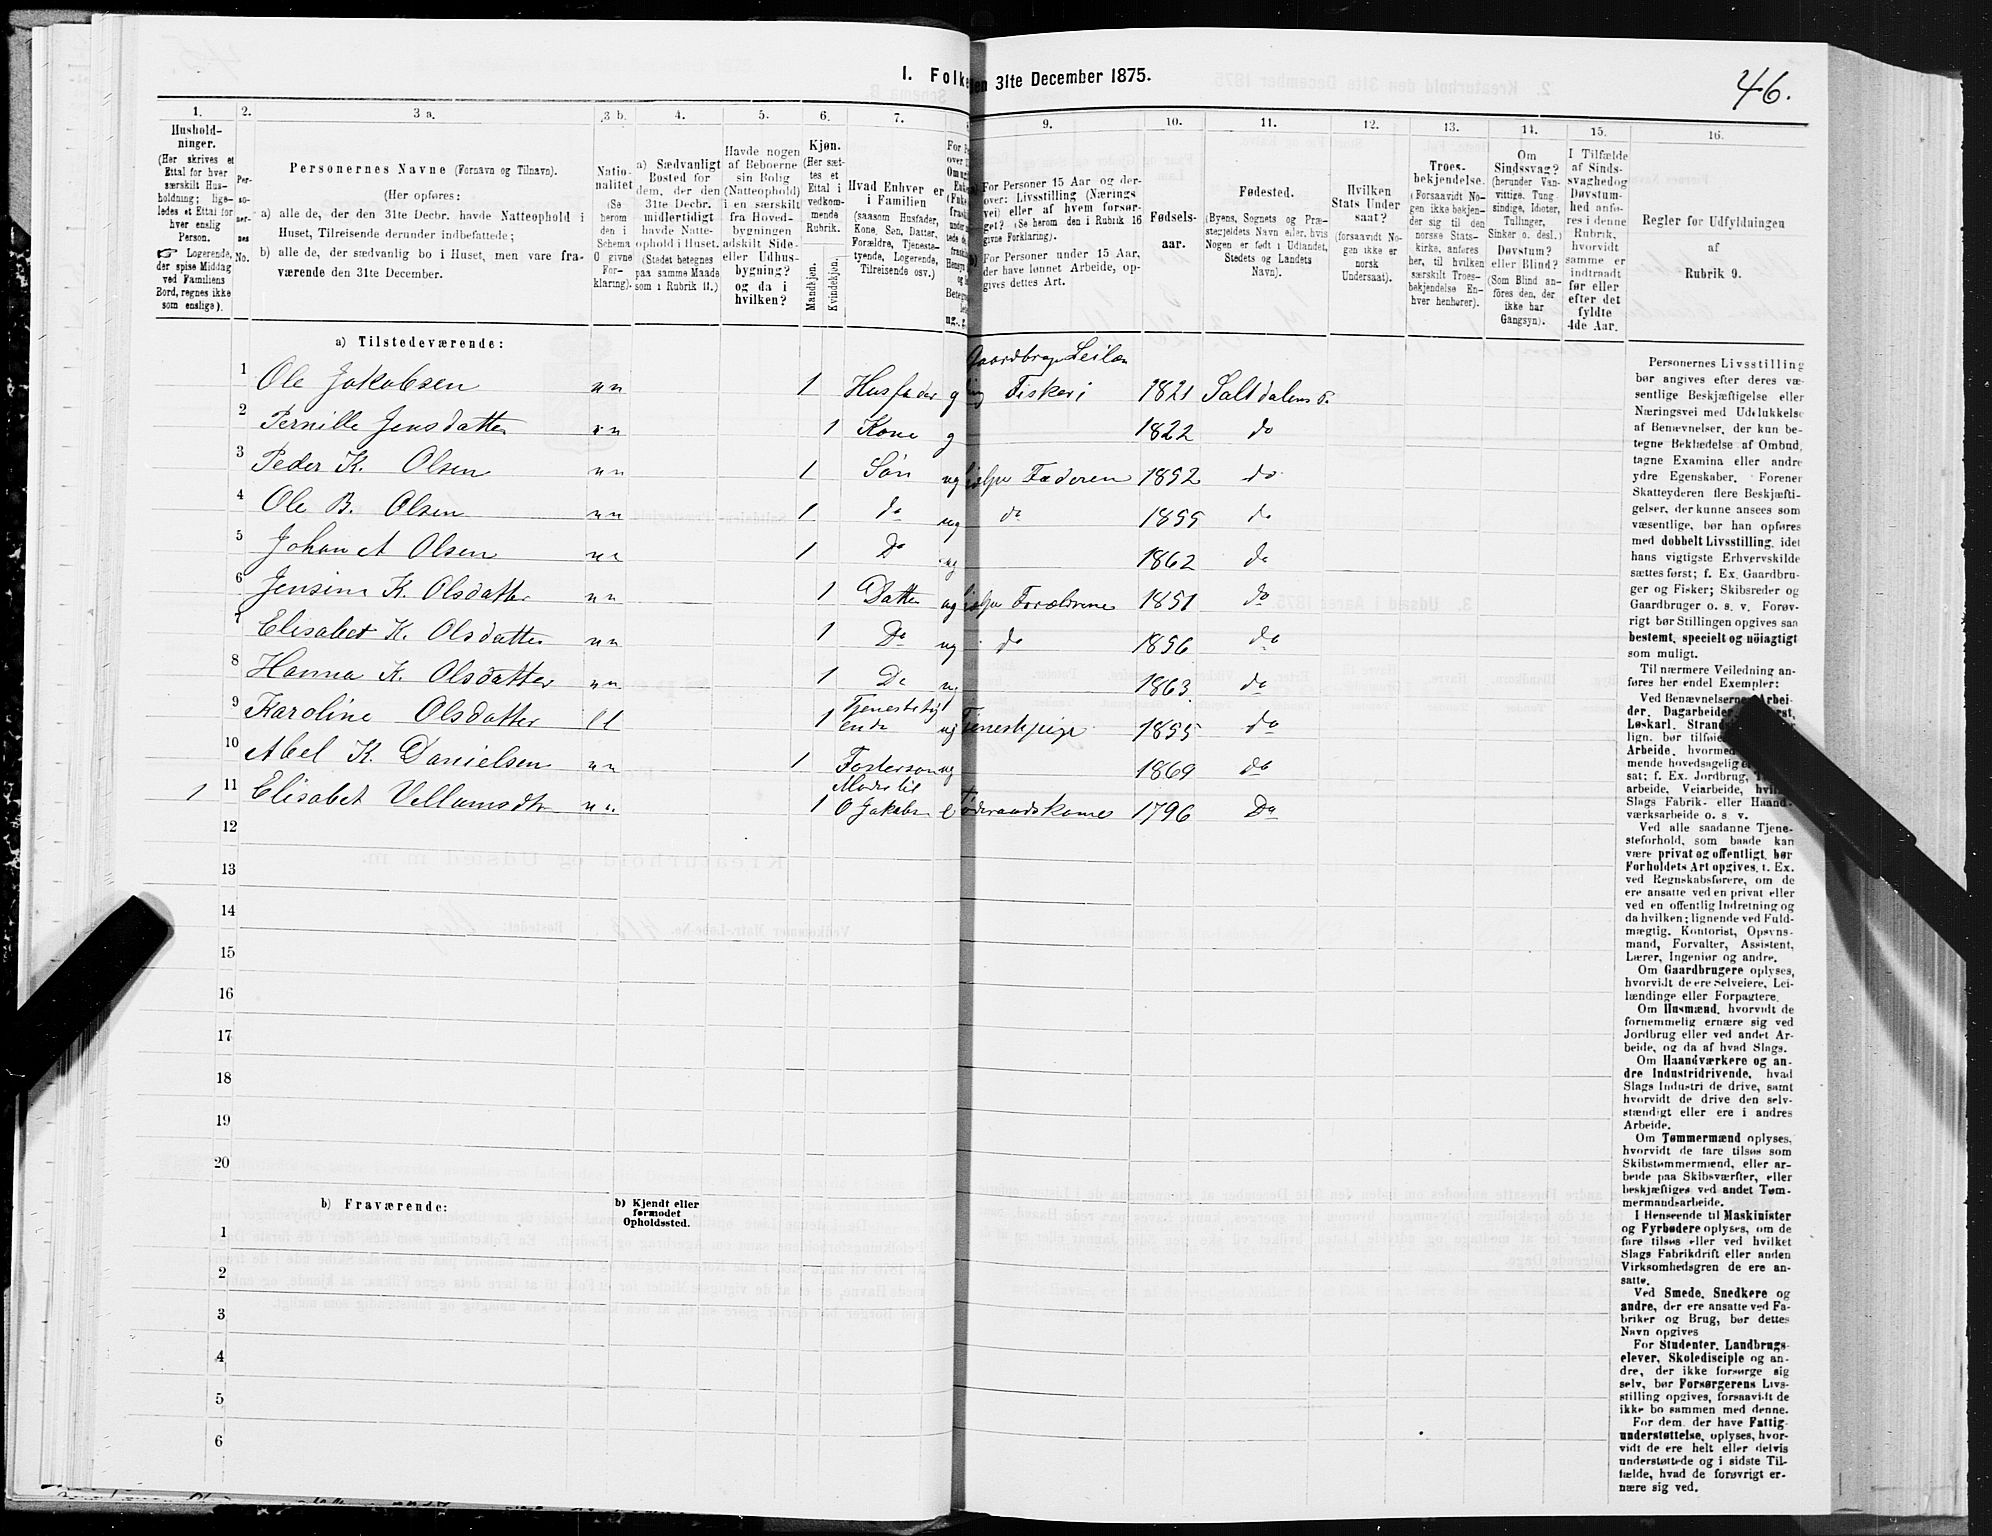 46.
I. Folke en 31te December 1875.
1.
Hushold-
ninger.
(Her skrives et
Ettal for hver
særskilt Hus-
holdning; lige-
ledes et Ettal for
hver enslig
Person.
☞ Logerende,
der spise Middag
ved Familiens
Bord, regnes ikke
som enslige).
2.
Per-
so-
ner-
nes
No.
3 a.
Personernes Navne (Fornavn og Tilnavn).
(Her opføres:
a) alle de, der den 31te Decbr. havde Natteophold i
Huset, Tilreisende derunder indbefattede;
b) alle de, der sædvanlig bo i Huset, men vare fra-
værende den 31te December.
3 b.
Natio-
nalitet
(Se
herom
den i
Schema
O givne
For-
klaring).
4.
a) Sædvanligt
Bosted for
dem, der den
31te Decbr.
midlertidigt
havde Natte-
ophold i Huset.
(Stedet betegnes
paa samme Maade
som i Rubrik 11.)
5.
Havde nogen
af Beboerne
sin Bolig
(Natteophold)
i en særskilt
fra Hoved-
bygningen
adskilt Side-
eller Udhus-
bygning?
og da i
hvilken?
6.
Kjøn.
(Her sæt-
tes et
Ettal i
vedkom-
mende
Rubrik.
Mandkjøn.
Kvindekjøn.
7.
Hvad Enhver er
i Familien
(saasom Husfader,
Kone, Søn, Datter,
Forældre, Tjeneste-
tyende, Logerende,
Tilreisende osv.)
9.
For Personer 15 Aar og der-
over: Livsstilling (Nærings
vei) eller af hvem forsør-
get? (Se herom den i Rubrik 16
givne Forklaring).
For Personer under 15 Aar,
der have lønnet Arbeide, op-
gives dettes Art.
10.
Fødsels-
aar.
11.
Fødested.
(Byens, Sognets og Præ-
stegjeldets Navn eller, hvis
Nogen er født i Udlandet,
Stedets og Landets
Navn).
12.
Hvilken
Stats Under
saat?
(forsaavidt No-
gen ikke er
norsk
Undersaat).
13.
Troes-
bekjendelse.
(Forsaavidt No-
gen ikke bekjen-
der sig til den
norske Stats-
kirke, anføres
her, til hvilken
særskilt Troes-
bekjendelse En-
hver henhører).
14.
Om
Sindssvag?
(herunder Van-
vittige, Tung-
sindige, Idioter,
Tullinger,
Sinker o. desl.)
Døvstum?
eller Blind?
(Som Blind an-
føres den, der
ikke har
Gangsyn).
15.
I Tilfælde
af Sinds-
svaghedog
Døvstum-
hed anfø-
res i denne
Rubrik,
hvorvidt
samme er
indtraadt
før eller
efter det
fyldte
4de Aar.
16.
Regler for Udfyldningen
af
Rubrik 9.
a) Tilstedeværende:
Gaardbrug Leilæn
1 Ole Jakobsen nn 1 Husfader g ding Fiskeri 1821 Saltdalens P.
2 Pernille Jensdatter nn 1 Kone g 1822 do
3 Peder K. Olsen nn 1 Søn ug hjælper Faderen 1852 do
4 Ole B. Olsen nn 1 do ug do 1855 do
5 Johan A Olsen nn 1 Do ug 1862 do
6 Jensine K. Olsdatter nn 1 Datter ug hjælper Forældrene 1851 do
7 Elisabet K. Olsdatter nn 1 Do ug do 1856 do
8 Hanna K. Olsdatter nn 1 Do ug 1863 do
9 Karoline Olsdatter ll 1 Tjenestety
ende ug Tjenestepige 1855 do
10 Abel K. Danielsen nn 1 Fosterson ug 1869 do
1 11 Elisabet Vellumsdtr nn 1 Moder til
O Jakobs e Føderaadskone 1796 Do
12
13
14
15
16
17
18
19
20
b) Fraværende:
b) Kjendt eller
formodet
Opholdssted.
1
2
3
4
5
6
Personernes Livsstilling
bør angives efter deres væ-
sentlige Beskjæftigelse eller
Næringsvei med Udelukkelse
af Benævnelser, der kun be-
tegne Beklædelse af Ombud,
tagne Examina eller andre
ydre Egenskaber. Forener
Skatteyderen flere Beskjæfti-
gelser, der kunne ansees som
væsentlige, bør han opføres
med dobbelt Livsstilling, idet
hans vigtigste Erhvervskilde
sættes først; f. Ex. Gaardbru-
ger og Fisker; Skibsreder og
Gaardbruger o. s. v. Forøv-
rigt bør Stillingen opgives saa
bestemt, specielt og nöiagtigt
som muligt.
Til nærmere Veiledning an-
føres her endel Exempler:
Ved Benævnelserne Arbei-
der, Dagarbeider,
Løskarl, Strands
lign. bør tilføies
Arbeide, hvormed
mende hovedsagelig er
sat; f. Ex. Jordbrug,
arbeide, Veiarbeide, hvilket
Slags Fabrik- eller Haand-
værksarbeide o. s. v.
Ved alle saadanne Tjene-
steforhold, som baade kan
være privat og offentligt, bør
Forholdets Art opgives, t. Ex.
ved Regnskabsførere, om de
ere ansatte ved en privat eller
ved en offentlig Indretning og
da hvilken; lignende ved Fuld-
mægtig, Kontorist, Opsyns-
mand, Forvalter, Assistent,
Lærer, Ingeniør og andre.
Om Gaardbrugere oplyses,
hvorvidt de ere Selveiere, Lei-
lændinge eller Forpagtere.
Om Husmænd, hvorvidt de
fornemmelig ernære sig ved
Jordbrug eller ved andet Ar-
beide, og da af hvad Slags.
Om Haandværkere og an-
dre Industridrivende, hvad
Slags Industri de drive, samt
hvorvidt de drive den selv-
stændigt eller ere i andres
Arbeide.
Om Tømmermænd oplyses,
hvorvidt de fare tilsøs som
Skibstømmermænd, eller ar-
beide paa Skibsværfter, eller
beskjæftiges ved andet Tøm-
mermandsarbeide.
I Henseende til Maskinister
og Fyrbødere oplyses, om de
fare tilsøs eller ved hvilket
Slags Fabrikdrift eller anden
Virksomhedsgren de ere an-
satte.
Ved Smede, Snedkere og
andre, der ere ansatte ved Fa-
briker og Brug, bør dettes
Navn opgives
For Studenter, Landbrugs-
elever, Skoledisciple og an-
dre, der ikke forsørge sig
selv, bør Forsørgerens Livs-
stilling opgives, forsaavidt de
ikke bo sammen med denne.
For dem, der have Fattig-
understøttelse, oplyses, hvor-
vidt de ere helt eller delvis
understøttede og i sidste Til-
fælde, hvad de forøvrigt er-
nære sig ved.